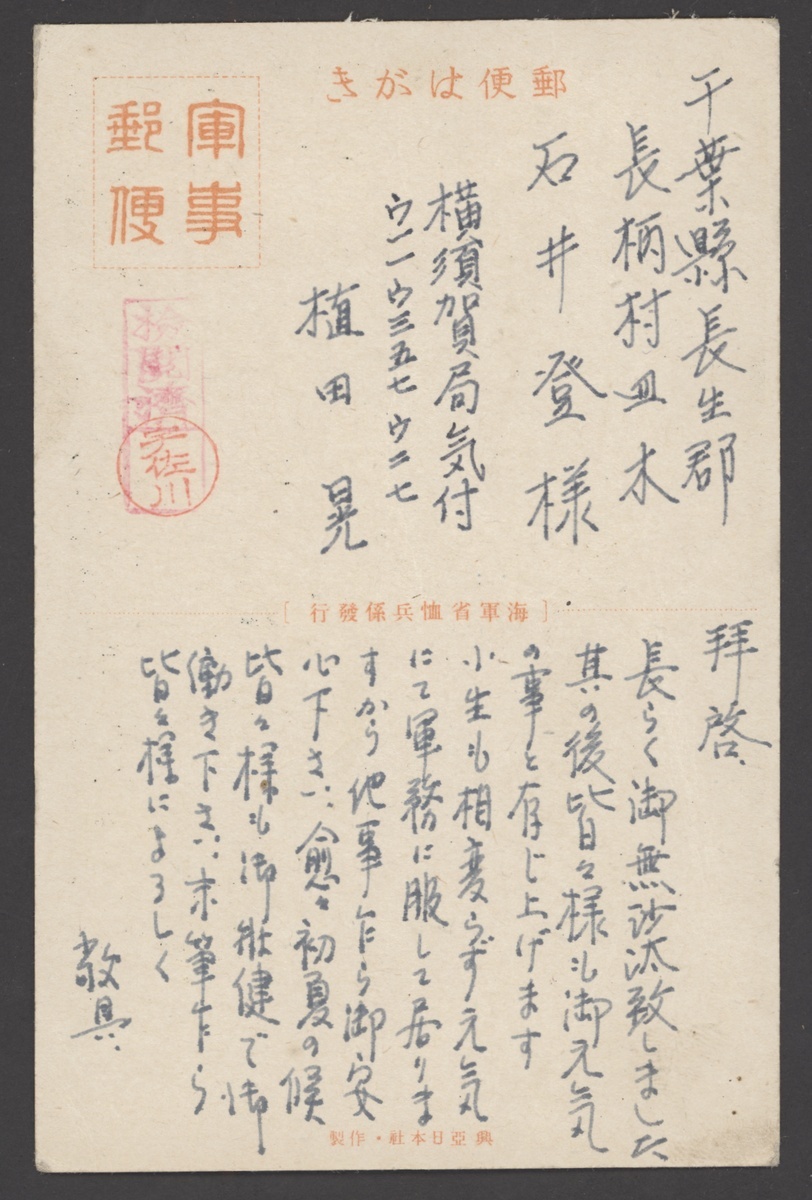 郵便はがき
軍事
郵便
千葉縣長生郡
長柄村皿木
石井登様
横須賀局気付
ウ二一ウ三五七ウ二七
植田晃
検閲済
宇佐川
[海軍省恤兵係發行]
拝啓
長らく御無沙汰致しました
其の後皆々様も御元気
の事と存じ上げます
小生も相変らず元気
にて軍務に服して居りま
すから他事乍ら御安
心下さい、愈々初夏の候
皆々様も御壮健で御
働き下さい、末筆乍ら
皆々様によろしく
敬具、
興亞日本社・作製